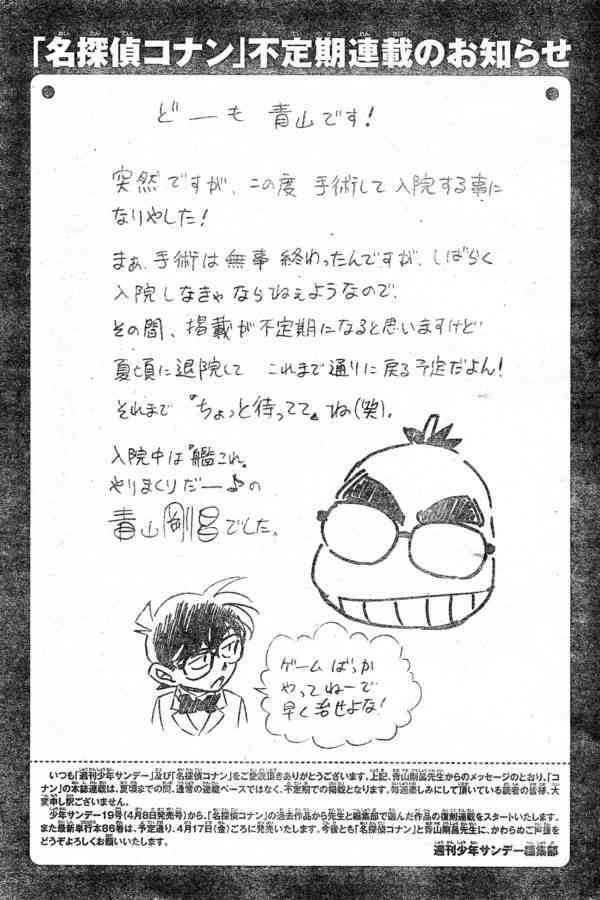 「名探偵コナン」不定期連載のお知らせ
どーも 青山です!
突然ですが、この度 手術して入院する事に
なりやした!
まぁ、手術は無事 終わったんですが、しばらく
入院しなきゃならねぇようなので、
その間、掲載が不定期になると思いますけど
夏頃に退院して これまで通りに戻る予定だよん!
それまで『ちょっと待ってて』ね(笑)。
入院中は『艦これ』
やりまくりだー♪の
青山剛昌でした。
ゲームばっか
やってねーで
早く治せよな!
いつも「週刊少年サンデー」及び「名探偵コナン」をご愛読頂きありがとうございます。上記、青山剛昌先生からのメッセージのとおり、「コ
ナン」の本誌連載は、夏頃までの間、通常の連載ペースではなく、不定期での掲載となります。毎週楽しみにして頂いている読者の皆様、大
変申し訳ございません。
少年サンデー19号(4月8日発売号)から、「名探偵コナン」の過去作品から先生と編集部で選んだ作品の復刻連載をスタートいたします。
また最新単行本86巻は、予定通り、4月17日(金)ごろに発売いたします。今後とも「名探偵コナン」と青山剛昌先生に、かわらぬご声援を
どうぞよろしくお願いいたします。
週刊少年サンデー編集部